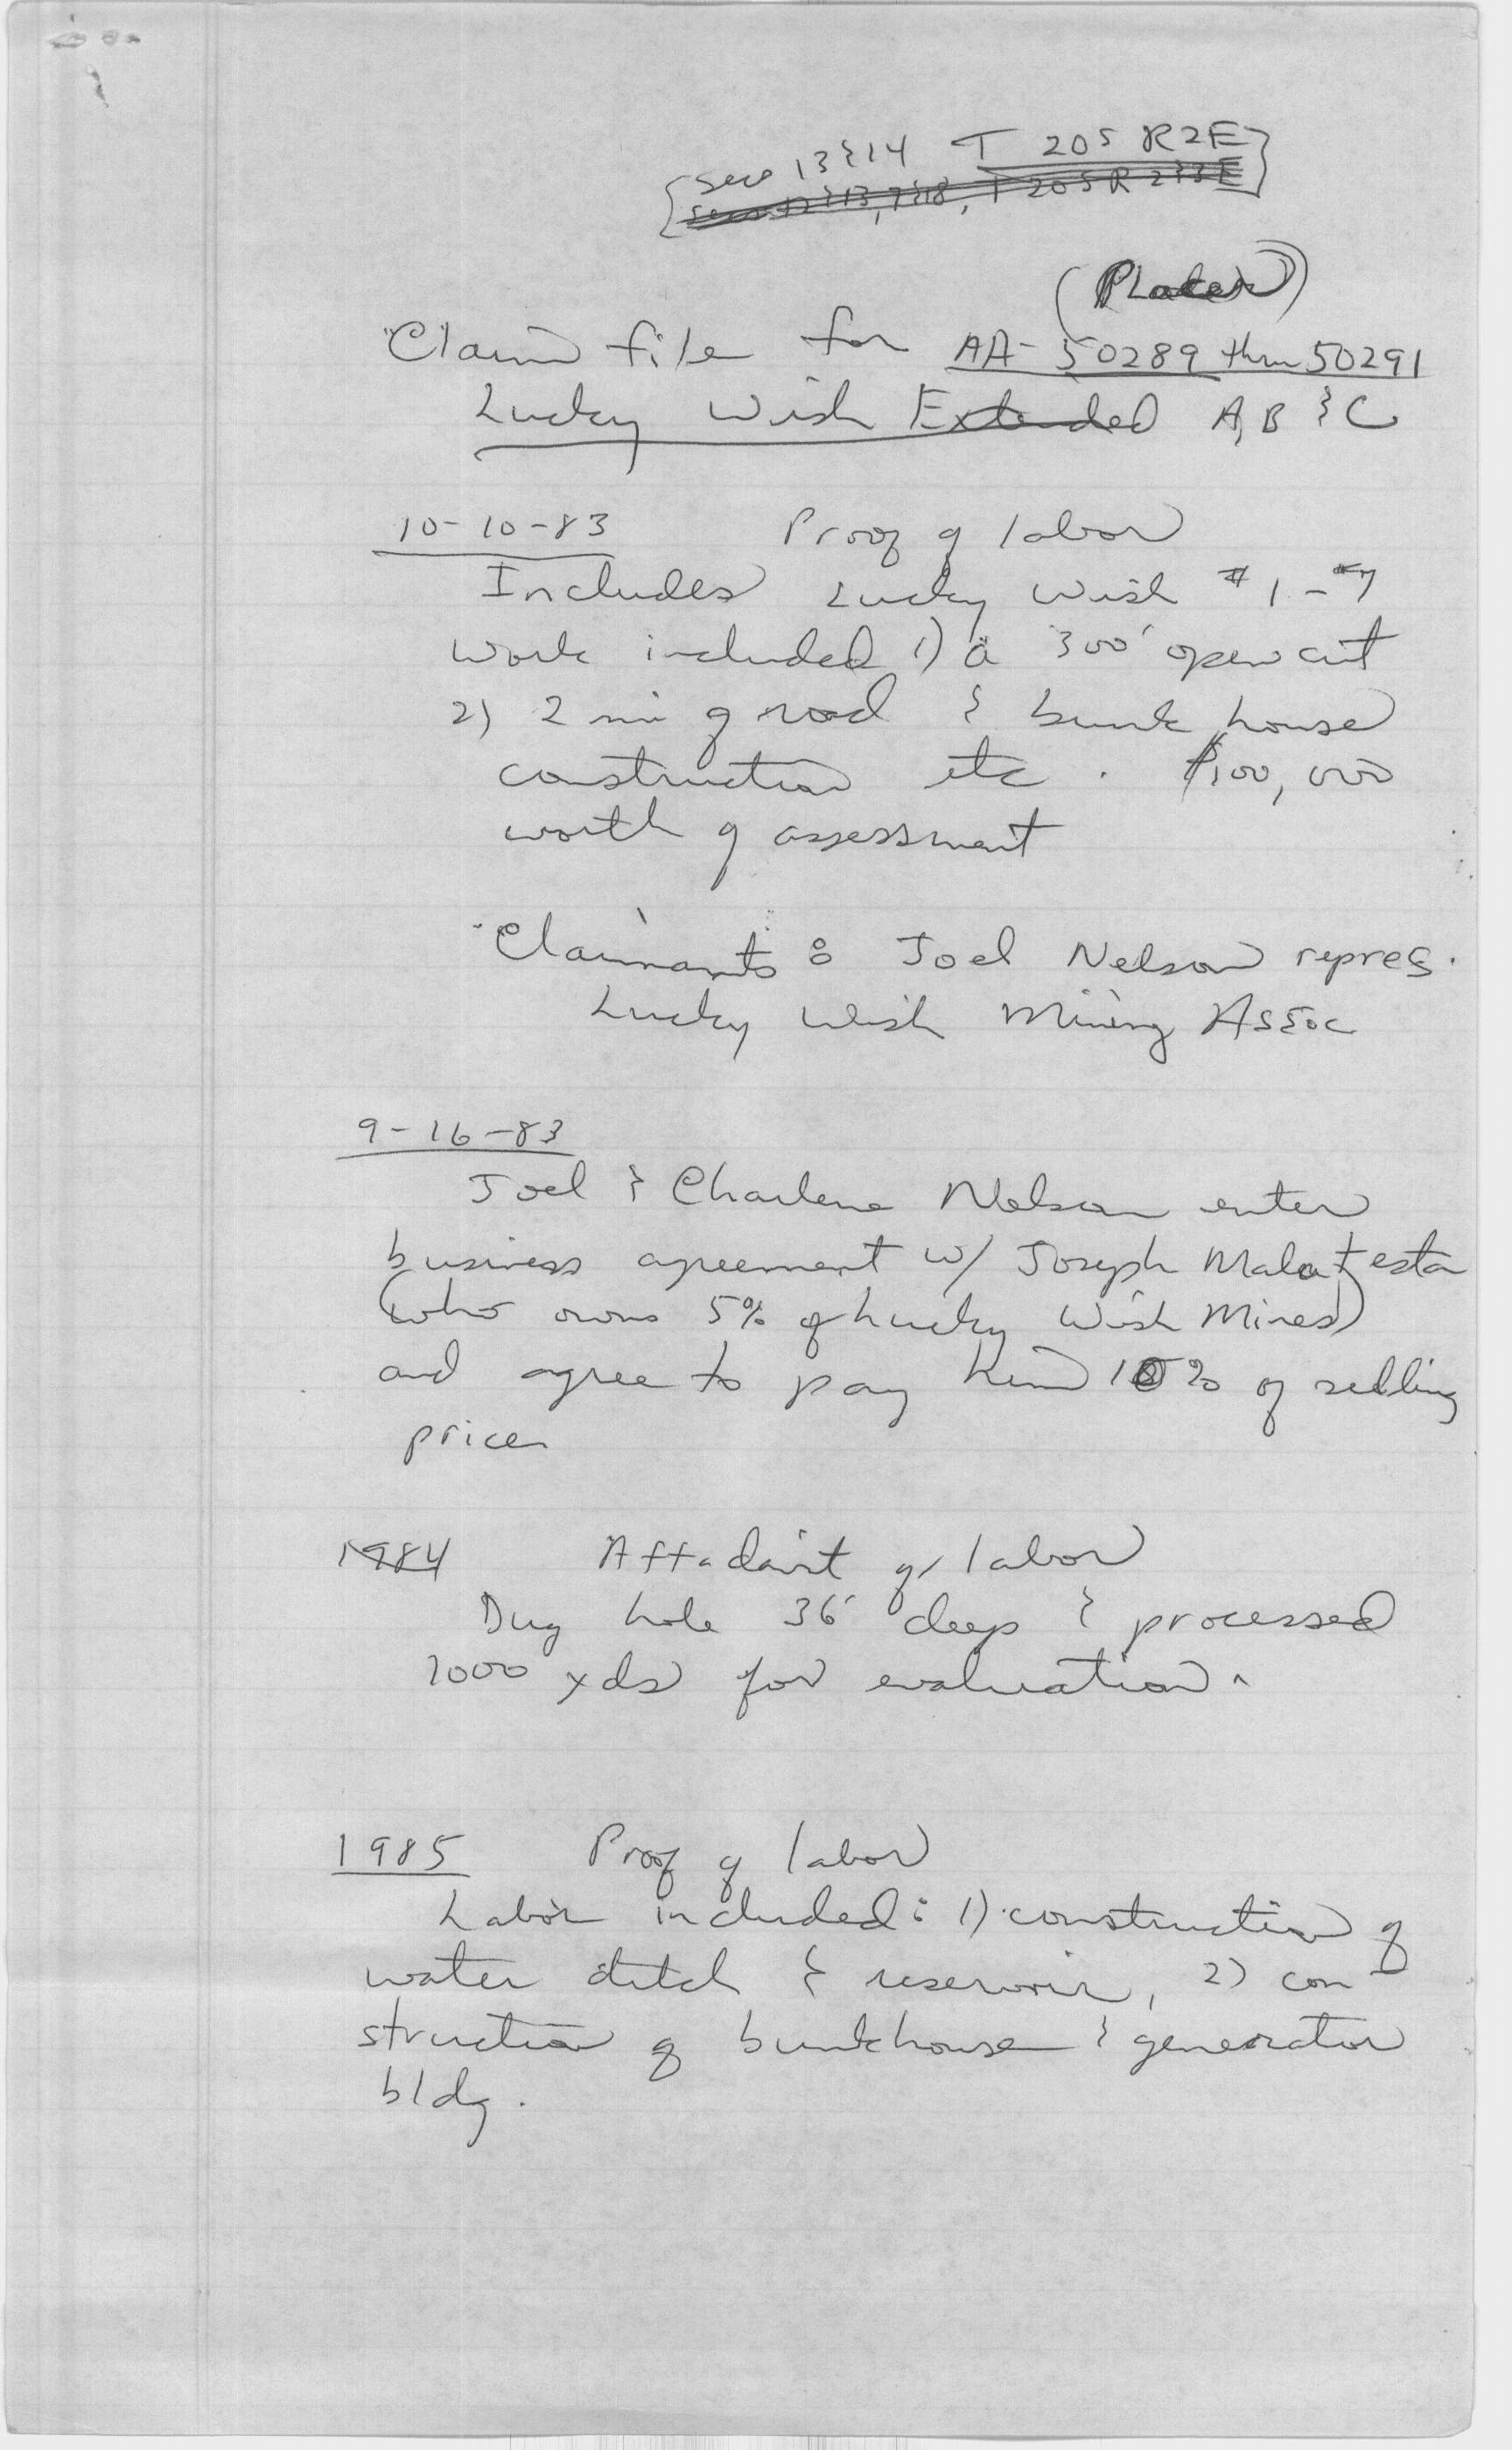 [Secs 13 & 14 T 20S R2E]
Secs 12 & 13, 7 & 18, T 20S R 2 & 3E
(Placer)
Claim file for AA-50289 thru 50291
Lucky Wish Extended A, B & C
10-10-83 Proof of labor
Includes Lucky Wish #1-#7
work included 1) a 300' open cut
2) 2 mi of road & bunk house
construction etc. $100,000
worth of assessment
Claimants: Joel Nelson repres.
Lucky Wish Mining Assoc
9-16-83
Joel & Charlene Nelson enter
business agreement w/ Joseph Malatesta
(who owns 5% of Lucky Wish Mines)
and agree to pay him 10% of selling
price
1984 Affadavit of labor
Dug hole 36' deep & processed
1000 yds for evaluation.
1985 Proof of labor
Labor included: 1) construction of
water ditch & reservoir, 2) con-
struction of bunkhouse & generator
bldg.